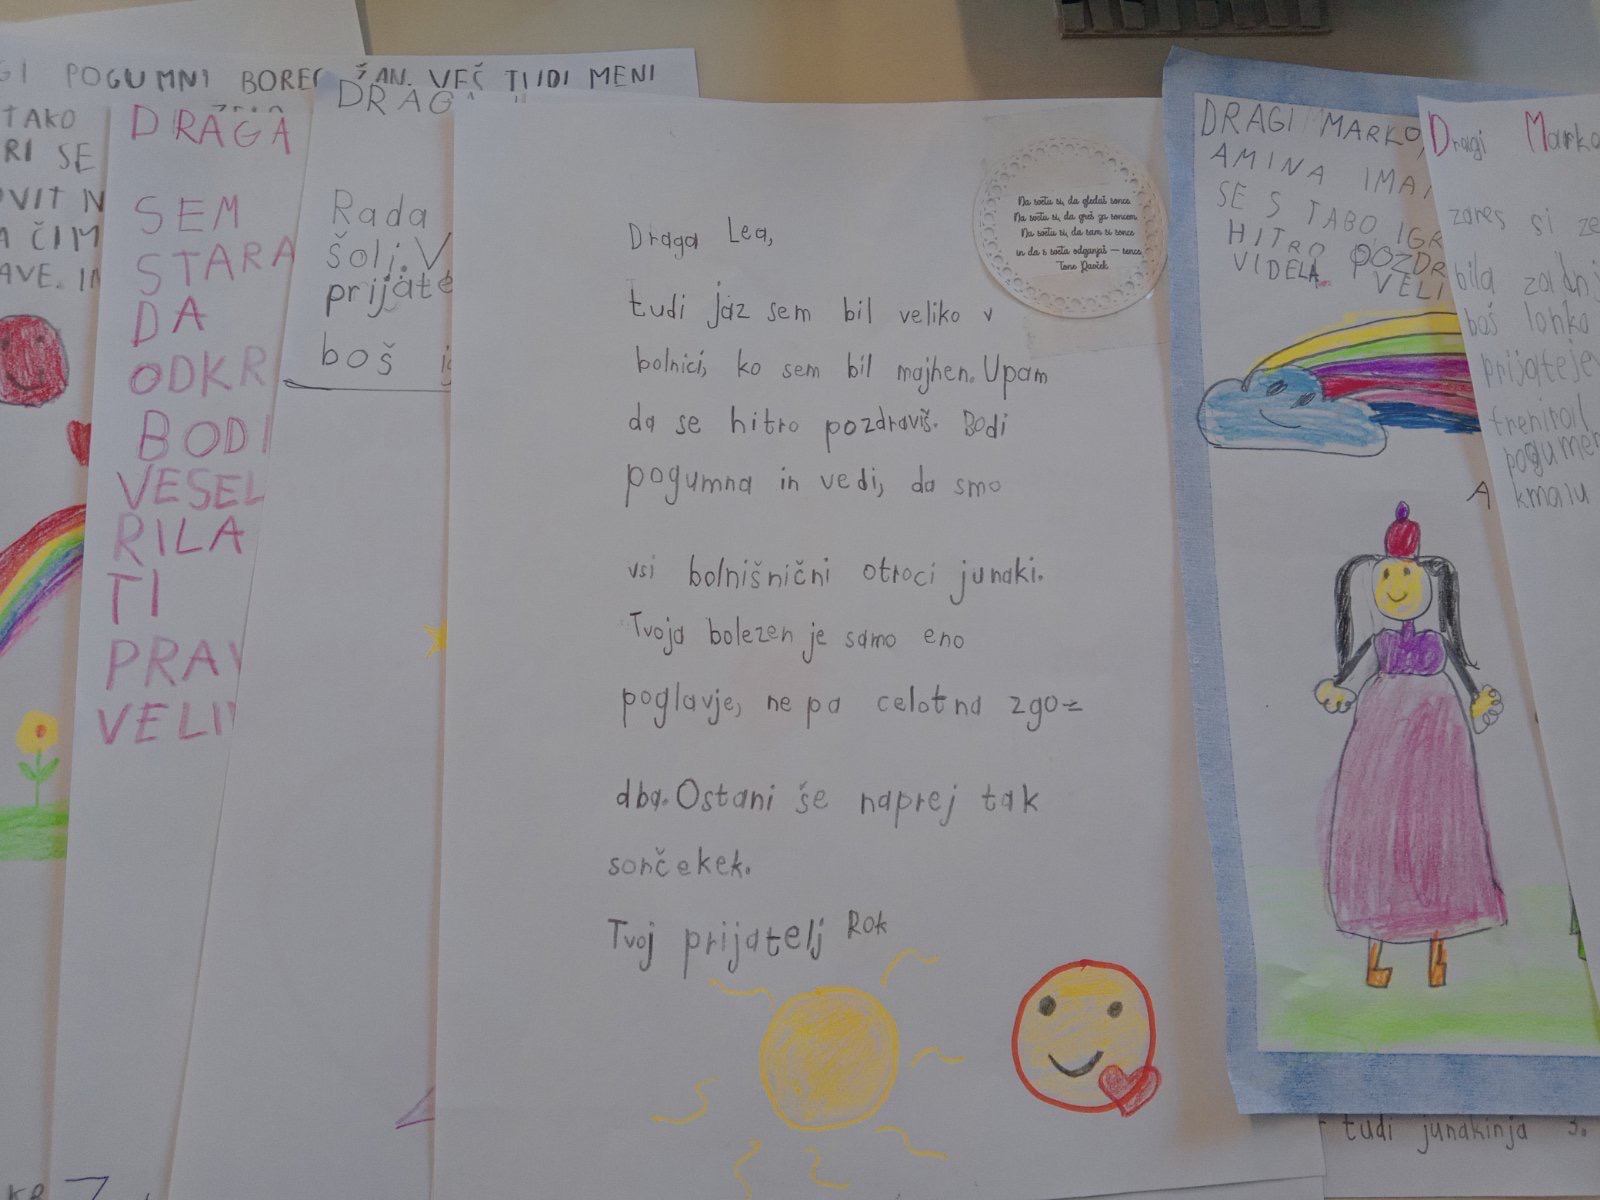 POGUMNI BOREC ŽAN. VEČ TUDI MENI
TAKO
RI SE
OVIT N
A ČIM
AVE. IN
DRAGA
SEM
STARA
DA
ODKR
BODI
VESEL
RILA
TI
PRAV
VELI
DRAGA
Rada
šoli. V
prijate
boš
Draga Lea,
tudi jaz sem bil veliko v
bolnici, ko sem bil majhen. Upam
da se hitro pozdraviš. Bodi
pogumna in vedi, da smo
vsi bolnišnični otroci junaki.
Tvoja bolezen je samo eno
poglavje, ne pa celotna zgo=
dba. Ostani še naprej tak
sončekek.
Tvoj prijatelj Rok
Na svetu si, da gledaš sonce.
Na svetu si, da greš za soncem.
Na svetu si, da sam si sonce
in da s sveta odganjaš — sence.
Tone Pavček
DRAGI MARKO,
AMINA IMA
SE S TABO IGR
HITRO POZDR
VIDELA. VELI
Dragi Marko
zares si ze
bila zadnj
boš lahko
prijatejev
treniral
pogumen
A kmalu
tudi junakinja 3.